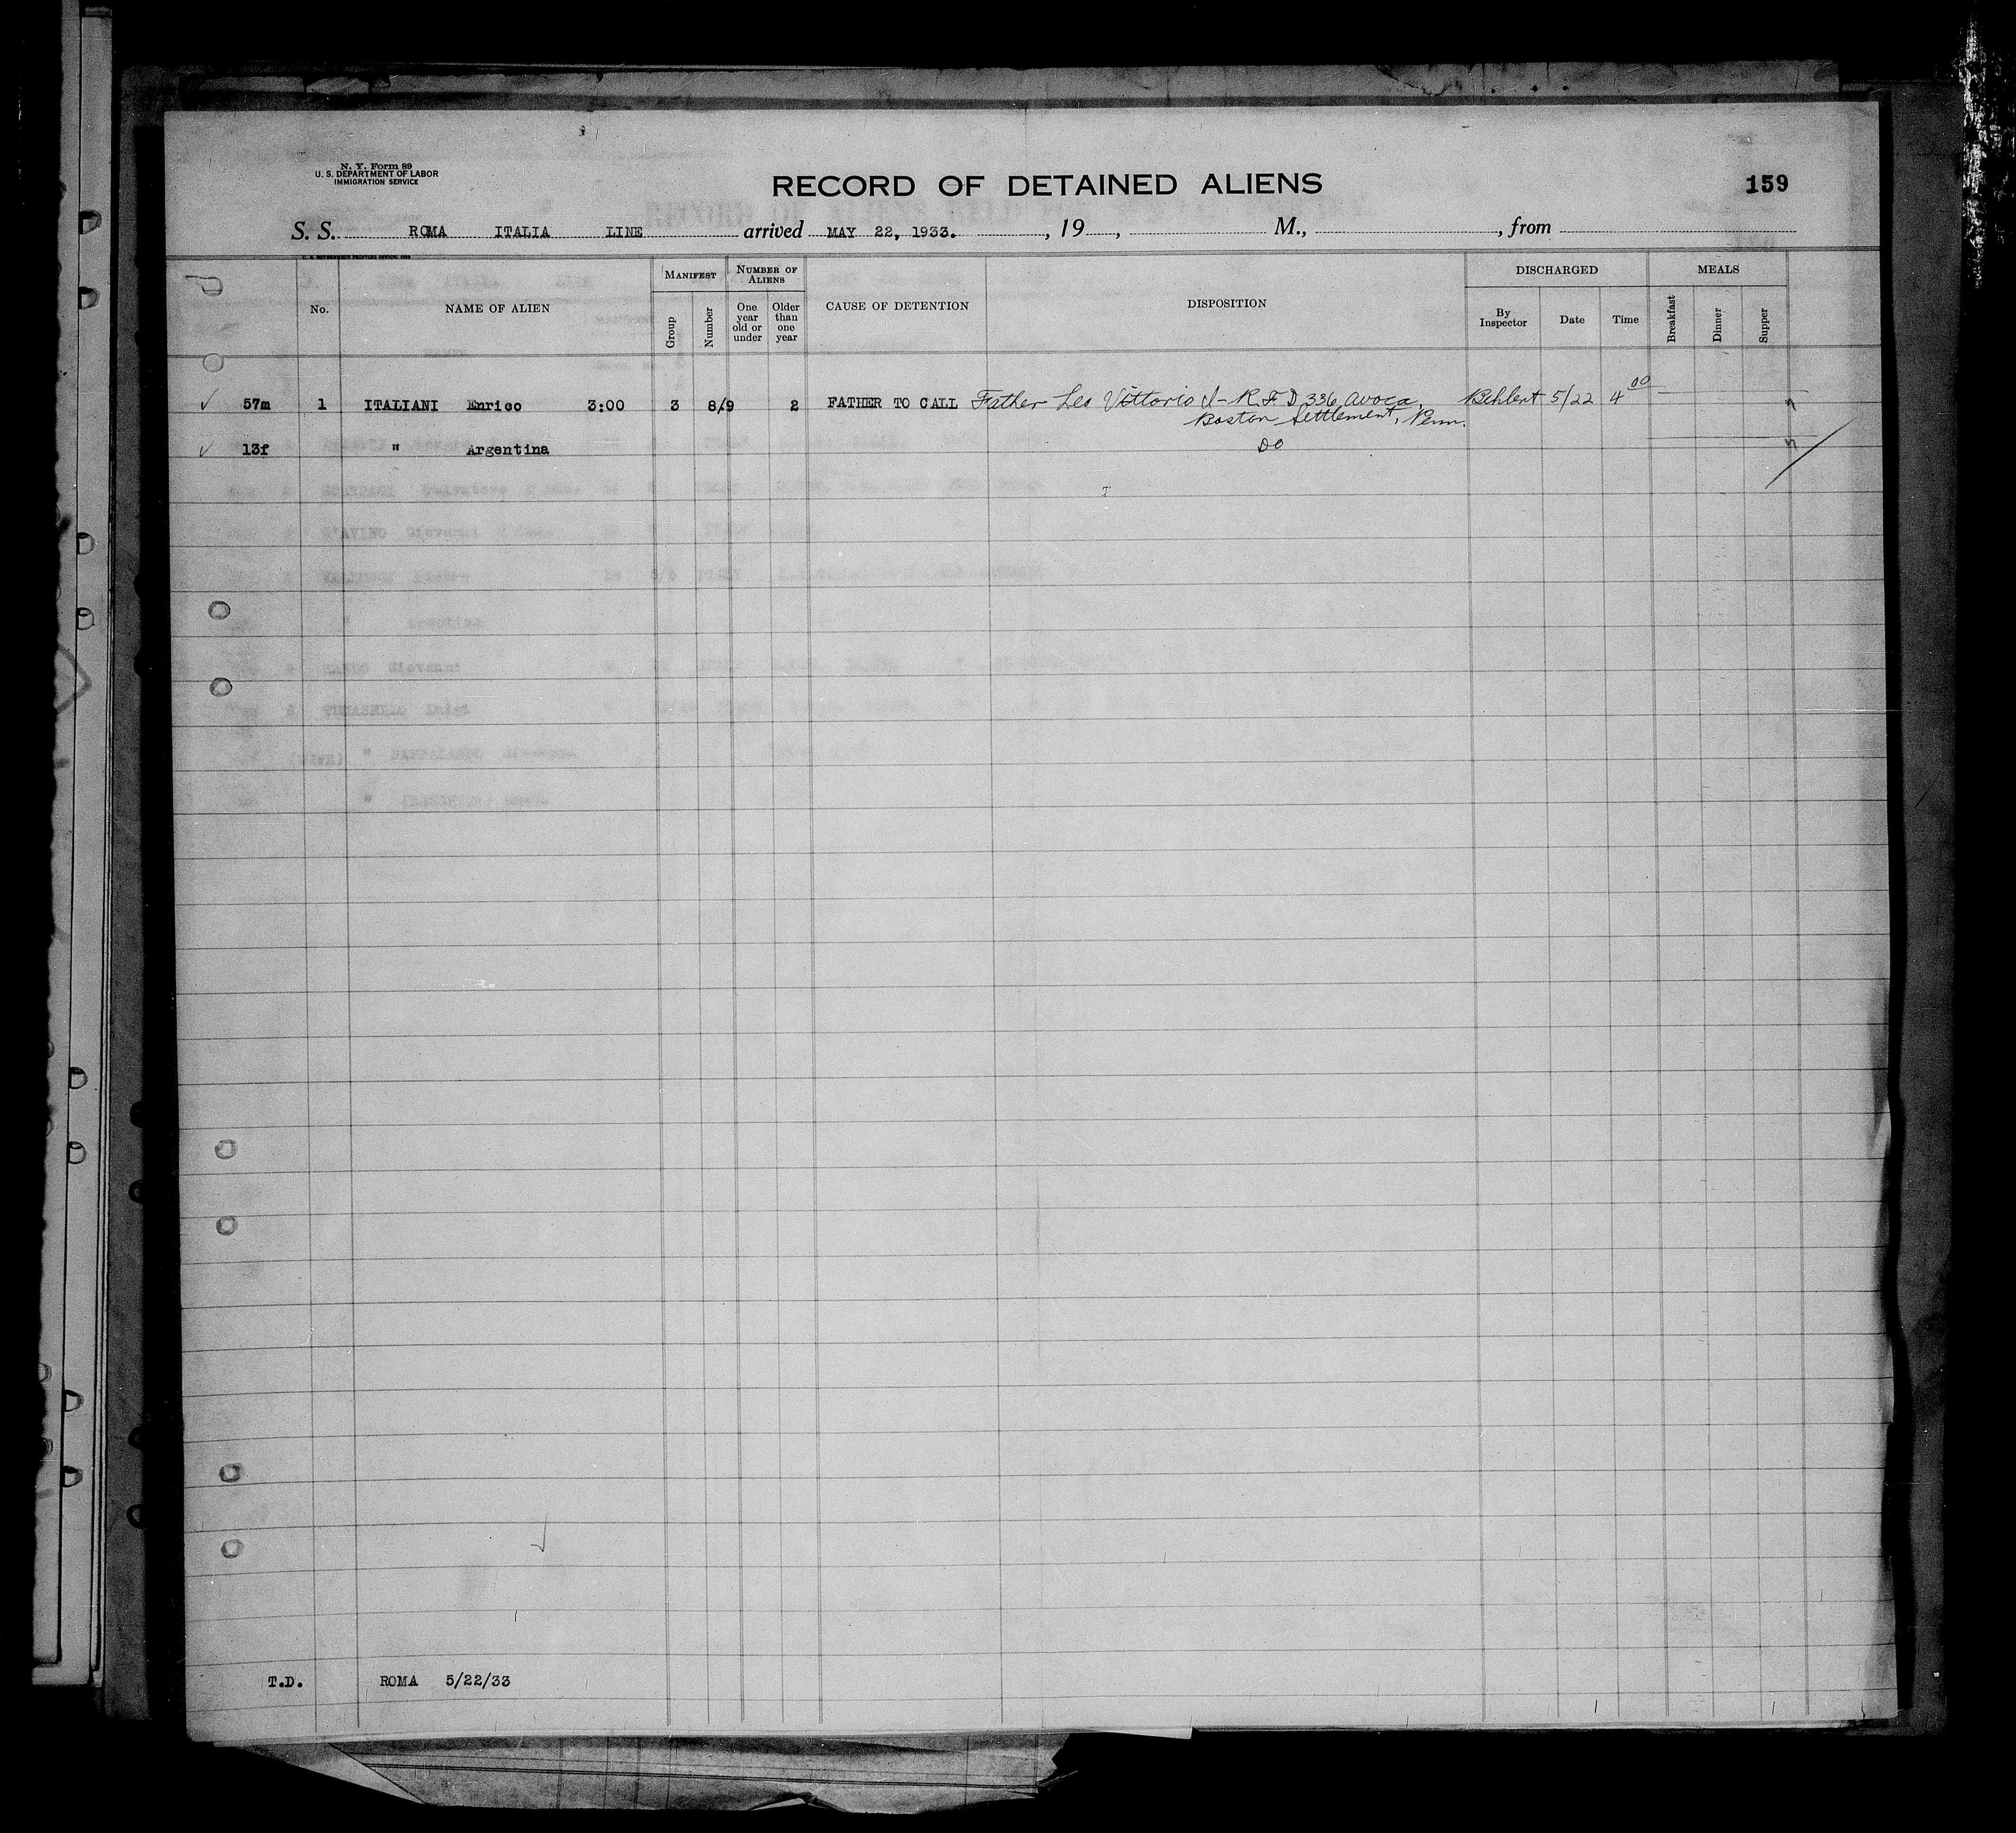 N. Y. Form 89
U. S. DEPARTMENT OF LABOR
IMMIGRATION SERVICE
RECORD OF DETAINED ALIENS
159
S. S. ROMA ITALIA LINE arrived MAY 22, 1933. , 19 , M., , from
U. S. GOVERNMENT PRINTING OFFICE
No.
NAME OF ALIEN
MANIFEST
Group
Number
NUMBER OF ALIENS
One year old or under
Older than one year
CAUSE OF DETENTION
DISPOSITION
DISCHARGED
By Inspector
Date
Time
MEALS
Breakfast
Dinner
Supper
57m 1 ITALIANI Enrico 3:00 3 8/9 2 FATHER TO CALL Father Leo Vittorio I - R.F.D 336 Avoca, Behlert 5/22 4 00
Boston Settlement, Penn.
13f " Argentina DO
T.D. ROMA 5/22/33